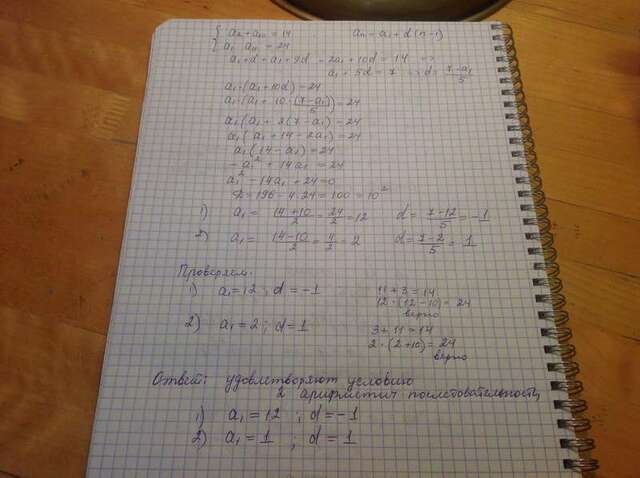 { a₂ + a₁₀ = 14    aₙ = a₁ + d(n-1)
{ a₁ a₁₁ = 24
a₁ + d + a₁ + 9d = 2a₁ + 10d = 14 =>
a₁ + 5d = 7 => d = (7-a₁)/5
a₁·(a₁ + 10d) = 24
a₁·(a₁ + 10·(7-a₁)/5) = 24
a₁(a₁ + 2(7-a₁) = 24
a₁(a₁ + 14 - 2a₁) = 24
a₁(14 - a₁) = 24
-a₁² + 14a₁ = 24
a₁² - 14a₁ + 24 = 0
D = 196 - 4·24 = 100 = 10²
1) a₁ = (14+10)/2 = 24/2 = 12    d = (7-12)/5 = -1
2) a₁ = (14-10)/2 = 4/2 = 2    d = (7-2)/5 = 1
Проверяем.
1) a₁ = 12 ; d = -1    11 + 3 = 14
12·(12-10) = 24
верно
2) a₁ = 2 ; d = 1    3 + 11 = 14
2·(2+10) = 24
верно
Ответ: удовлетворяют условию
2 арифметич последовательность
1) a₁ = 12 ; d = -1
2) a₁ = 1 ; d = 1